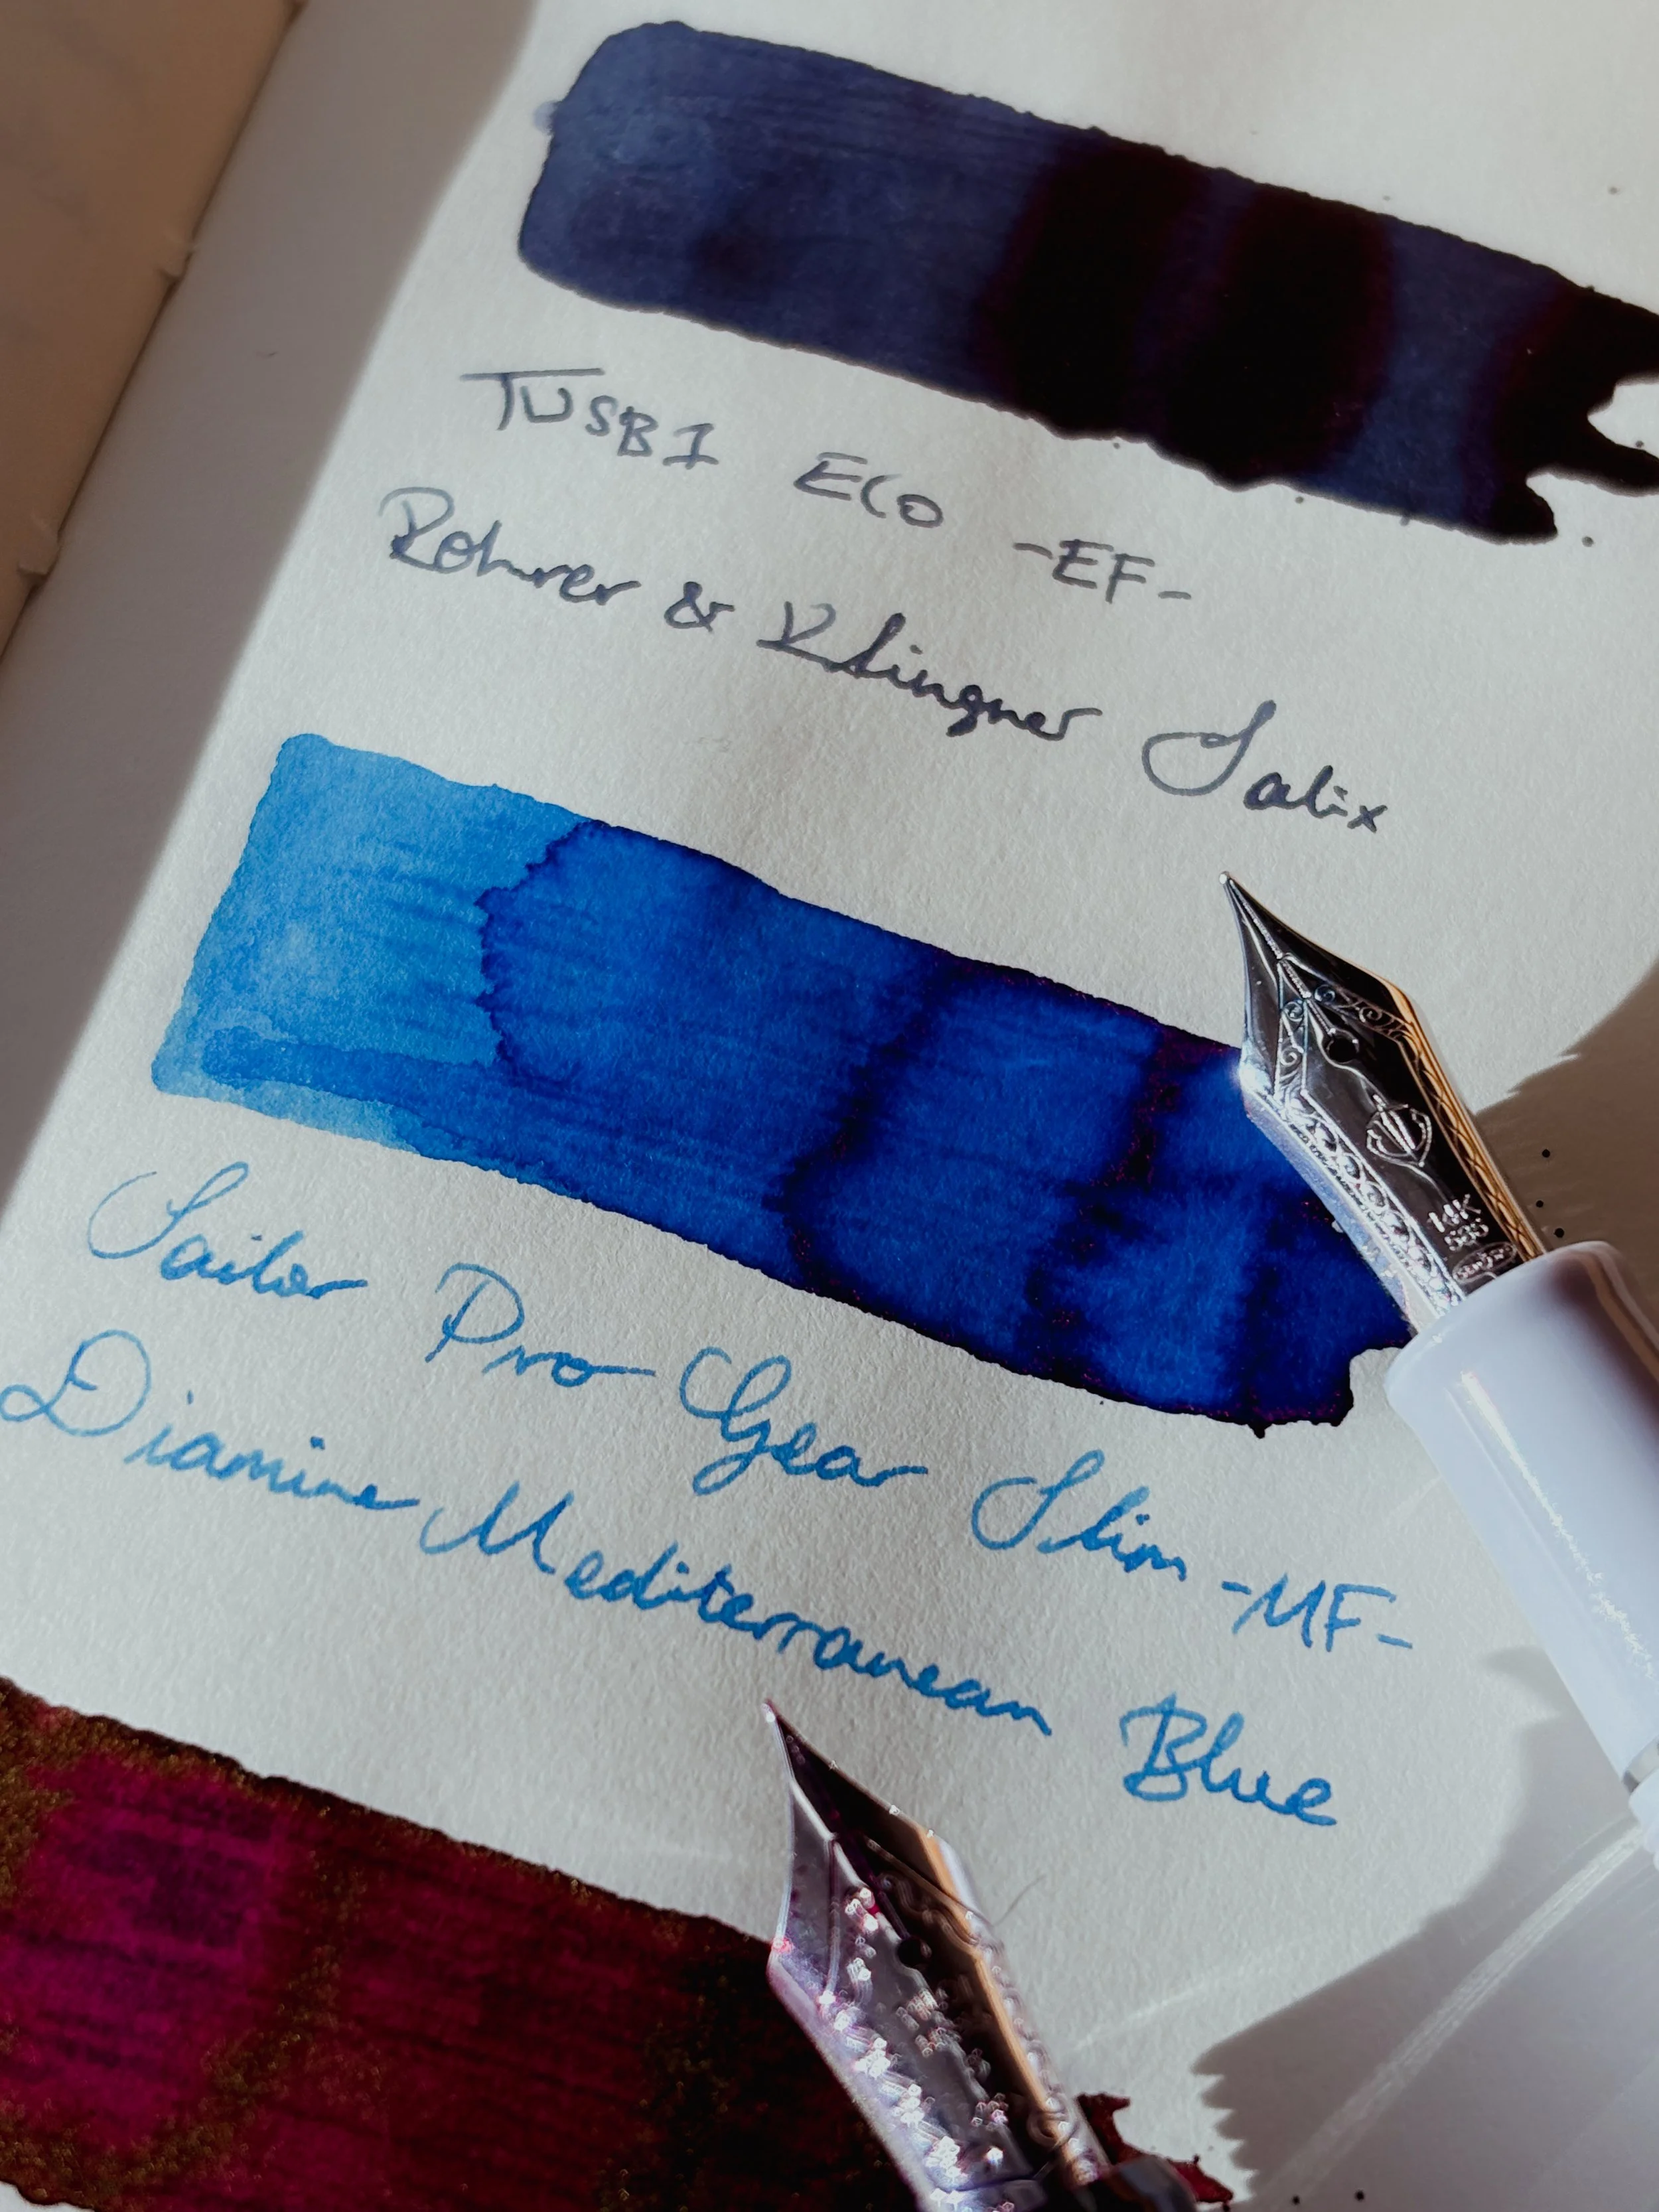 TWSBI ECO -EF-
Rohrer & Klingner Salix
14K
585
Sailor Pro Gear Slim -MF-
Diamine Mediterranean Blue